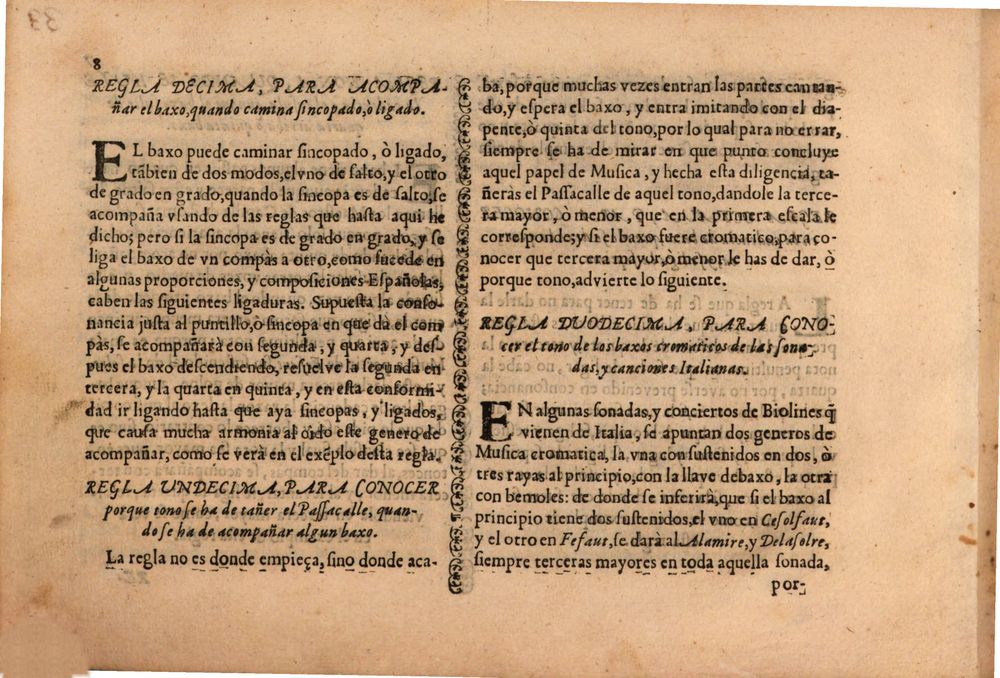 8
REGLA DECIMA, PARA ACOMPA-
ñar el baxo, quando camina sincopado, ò ligado.
EL baxo puede caminar sincopado, ò ligado,
tãbien de dos modos, el vno de salto, y el otro
de grado en grado, quando la sincopa es de salto, se
acompaña vsando de las reglas que hasta aqui he
dicho; pero si la sincopa es de grado en grado, y se
liga el baxo de vn compàs a otro, como sucede en
algunas proporciones, y composiciones Españolas,
caben las siguientes ligaduras. Supuesta la conso-
nancia justa al puntillo, ò sincopa en que dà el com
pàs, se acompañarà con segunda, y quarta, y des-
pues el baxo descendiendo, resuelve la segunda en
tercera, y la quarta en quinta, y en esta conformi-
dad ir ligando hasta que aya sincopas, y ligados,
que causa mucha armonia al oìdo este genero de
acompañar, como se verà en el exẽplo desta regla.
REGLA UNDECIMA, PARA CONOCER
porque tono se ha de tañer el Passacalle, quan-
do se ha de acompañar algun baxo.
La regla no es donde empieça, sino donde aca-
ba, porque muchas vezes entran las partes cantan-
do, y espera el baxo, y entra imitando con el dia-
pente, ò quinta del tono, por lo qual para no errar,
siempre se ha de mirar en que punto concluye
aquel papel de Musica, y hecha esta diligencia, ta-
ñeràs el Passacalle de aquel tono, dandole la terce-
ra mayor, ò menor, que en la primera escala le
corresponde; y si el baxo fuere cromatico, para co-
nocer que tercera mayor, ò menor le has de dar, ò
porque tono, advierte lo siguiente.
REGLA DUODECIMA, PARA CONO-
cer el tono de los baxos cromaticos de las sona-
das, y canciones Italianas.
EN algunas sonadas, y conciertos de Biolines q̃
vienen de Italia, se apuntan dos generos de
Musica cromatica, la vna con sustenidos en dos, ò
tres rayas al principio, con la llave debaxo, la otra
con bemoles: de donde se inferirà, que si el baxo al
principio tiene dos sustenidos, el vno en Cesolfaut,
y el otro en Fefaut, se darà al Alamire, y Delasolre,
siempre terceras mayores en toda aquella sonada,
por-